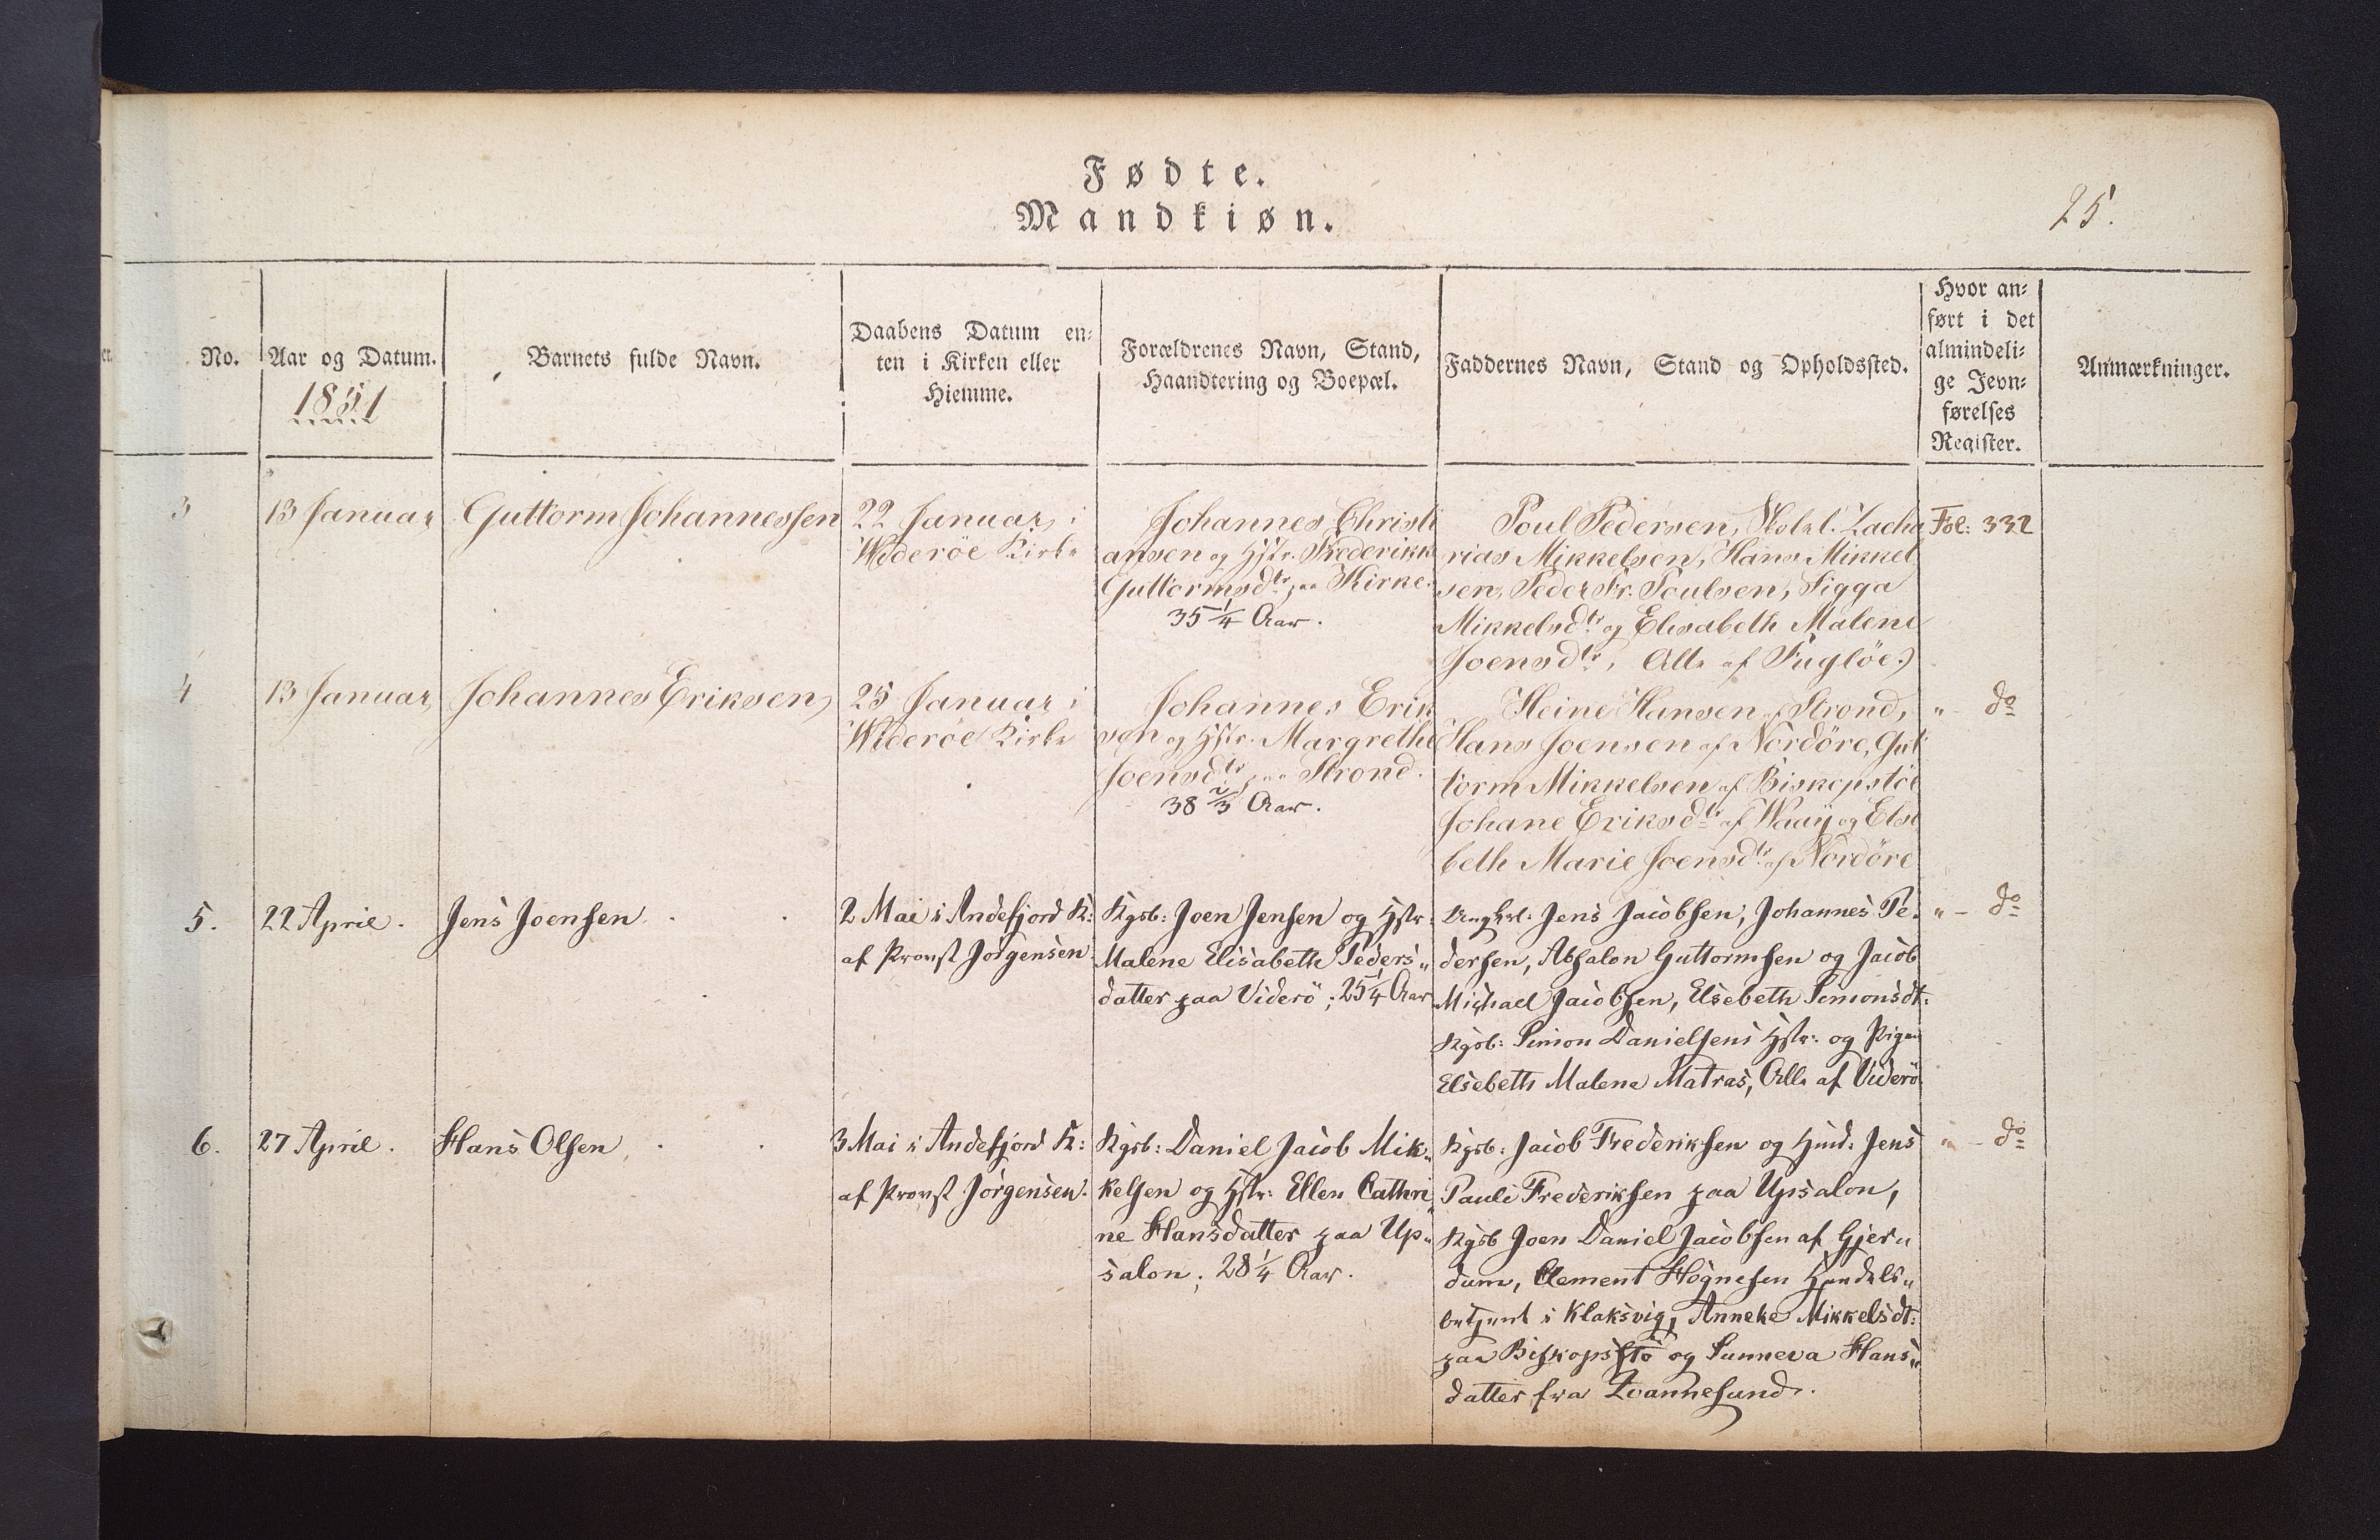 Fødte.
Mandkiøn.
25.
No.
Aar og Datum.
1851
Barnets fulde Navn.
Daabens Datum en-
ten i Kirken eller
Hiemme.
Forældrenes Navn, Stand,
Haandtering og Boepæl.
Faddernes Navn, Stand og Opholdssted.
Hvor an-
ført i det
almindeli-
ge Jevn-
førelses
Register.
Anmærkninger.
3
13 Januar
Guttorm Johannessen
22 Januar i
Widerøe Kirke
Johannes Christi
ansen og Hstr. Frederikke
Guttormsdtr paa Kirke.
35 1/4 Aar.
Poul Pedersen, Zacha
rias Mikkelsen, Hans Mikkel
sen, Peder Fr. Poulsen, Sigga
Mikkelsdtr og Elisabeth Malene
Joensdtr, Alle af Fugløe.
Fol: 332
4
13 Januar
Johannes Eriksen
25 Januar i
Widerøe Kirke
Johannes Erik
sen og Hstr. Margrethe
Joensdtr paa Strond.
38 2/3 Aar.
Heine Hansen af Strond,
Hans Joensen af Nordöre, Gut
torm Mikkelsen af Biskopstöe
Johane Eriksdtr af Waaÿ og Else
beth Marie Joensdtr af Nordöre
" - do
5.
22 April.
Jens Joensen
2 Mai i Andefjord K:
af Provst Jörgensen
Kgsb: Joen Jensen og Hstr:
Malene Elisabeth Peders"
datter paa Viderö; 25 1/4 Aar
Ungkrl: Jens Jacobsen, Johannes Pe-
dersen, Absalon Guttormsen og Jacob
Michael Jacobsen, Elsebeth Simonsdt:
Kgsb: Simon Danielsens Hstr: og Pigen
Elsebeth Malene Matras, Alle af Viderö
" - do
6.
27 April.
Hans Olsen
3 Mai i Andefjord K:
af Provst Jörgensen.
Kgsb: Daniel Jacob Mik"
kelsen og Hstr: Ellen Cathri"
ne Hansdatter paa Up"
salon; 28 1/4 Aar.
Kgsb: Jacob Frederiksen og Huusm: Jens
Pauli Frederiksen paa Upsalon,
Kgsb Joen Daniel Jacobsen af Gjer"
dum, Clement Högnesen Handels"
betjent i Klaksvig, Anneke Mikkelsdt:
paa Biskopstö og Sunneva Hans"
datter fra Qvannesund.
" - do